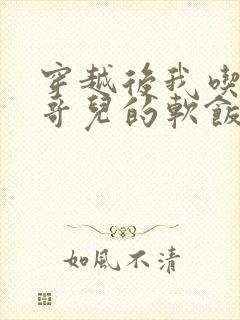 穿越後我喫
哥兒的軟飯
如風不清